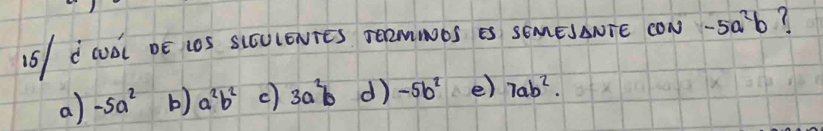 15/ ¿ CUÁL DE LOS SIGUIENTES TERMINOS ES SEMEJANTE CON -5a²b?
a) -5a² b) a²b² c) 3a²b d) -5b² e) 7ab².